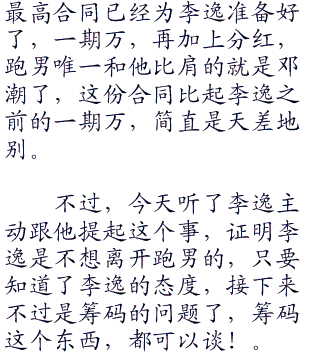 最高合同已经为李逸准备好
了，一期万，再加上分红，
跑男唯一和他比肩的就是邓
潮了，这份合同比起李逸之
前的一期万，简直是天差地
别。
不过，今天听了李逸主
动跟他提起这个事，证明李
逸是不想离开跑男的，只要
知道了李逸的态度，接下来
不过是筹码的问题了，筹码
这个东西，都可以谈！。